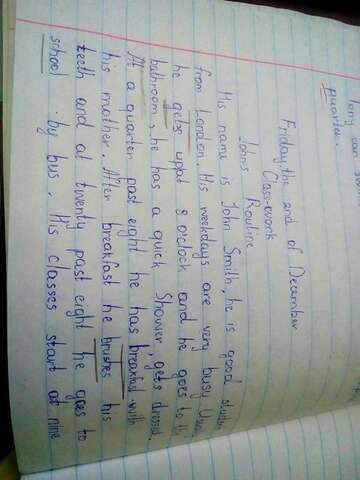 Tony and
quarter.
Friday, the 2nd of December
Class-work
John's Routine
His name is John Smith, he is good
from London. His weekdays are very busy.
he gets upat 8 o'clock and he goes to
bathroom, he has a quick Shower, gets dressed.
At a quarter past eight he has breakfast with
his mother. After breakfast he brushes his
teeth and at twenty past eight he goes to
school by bus. His classes start at nine